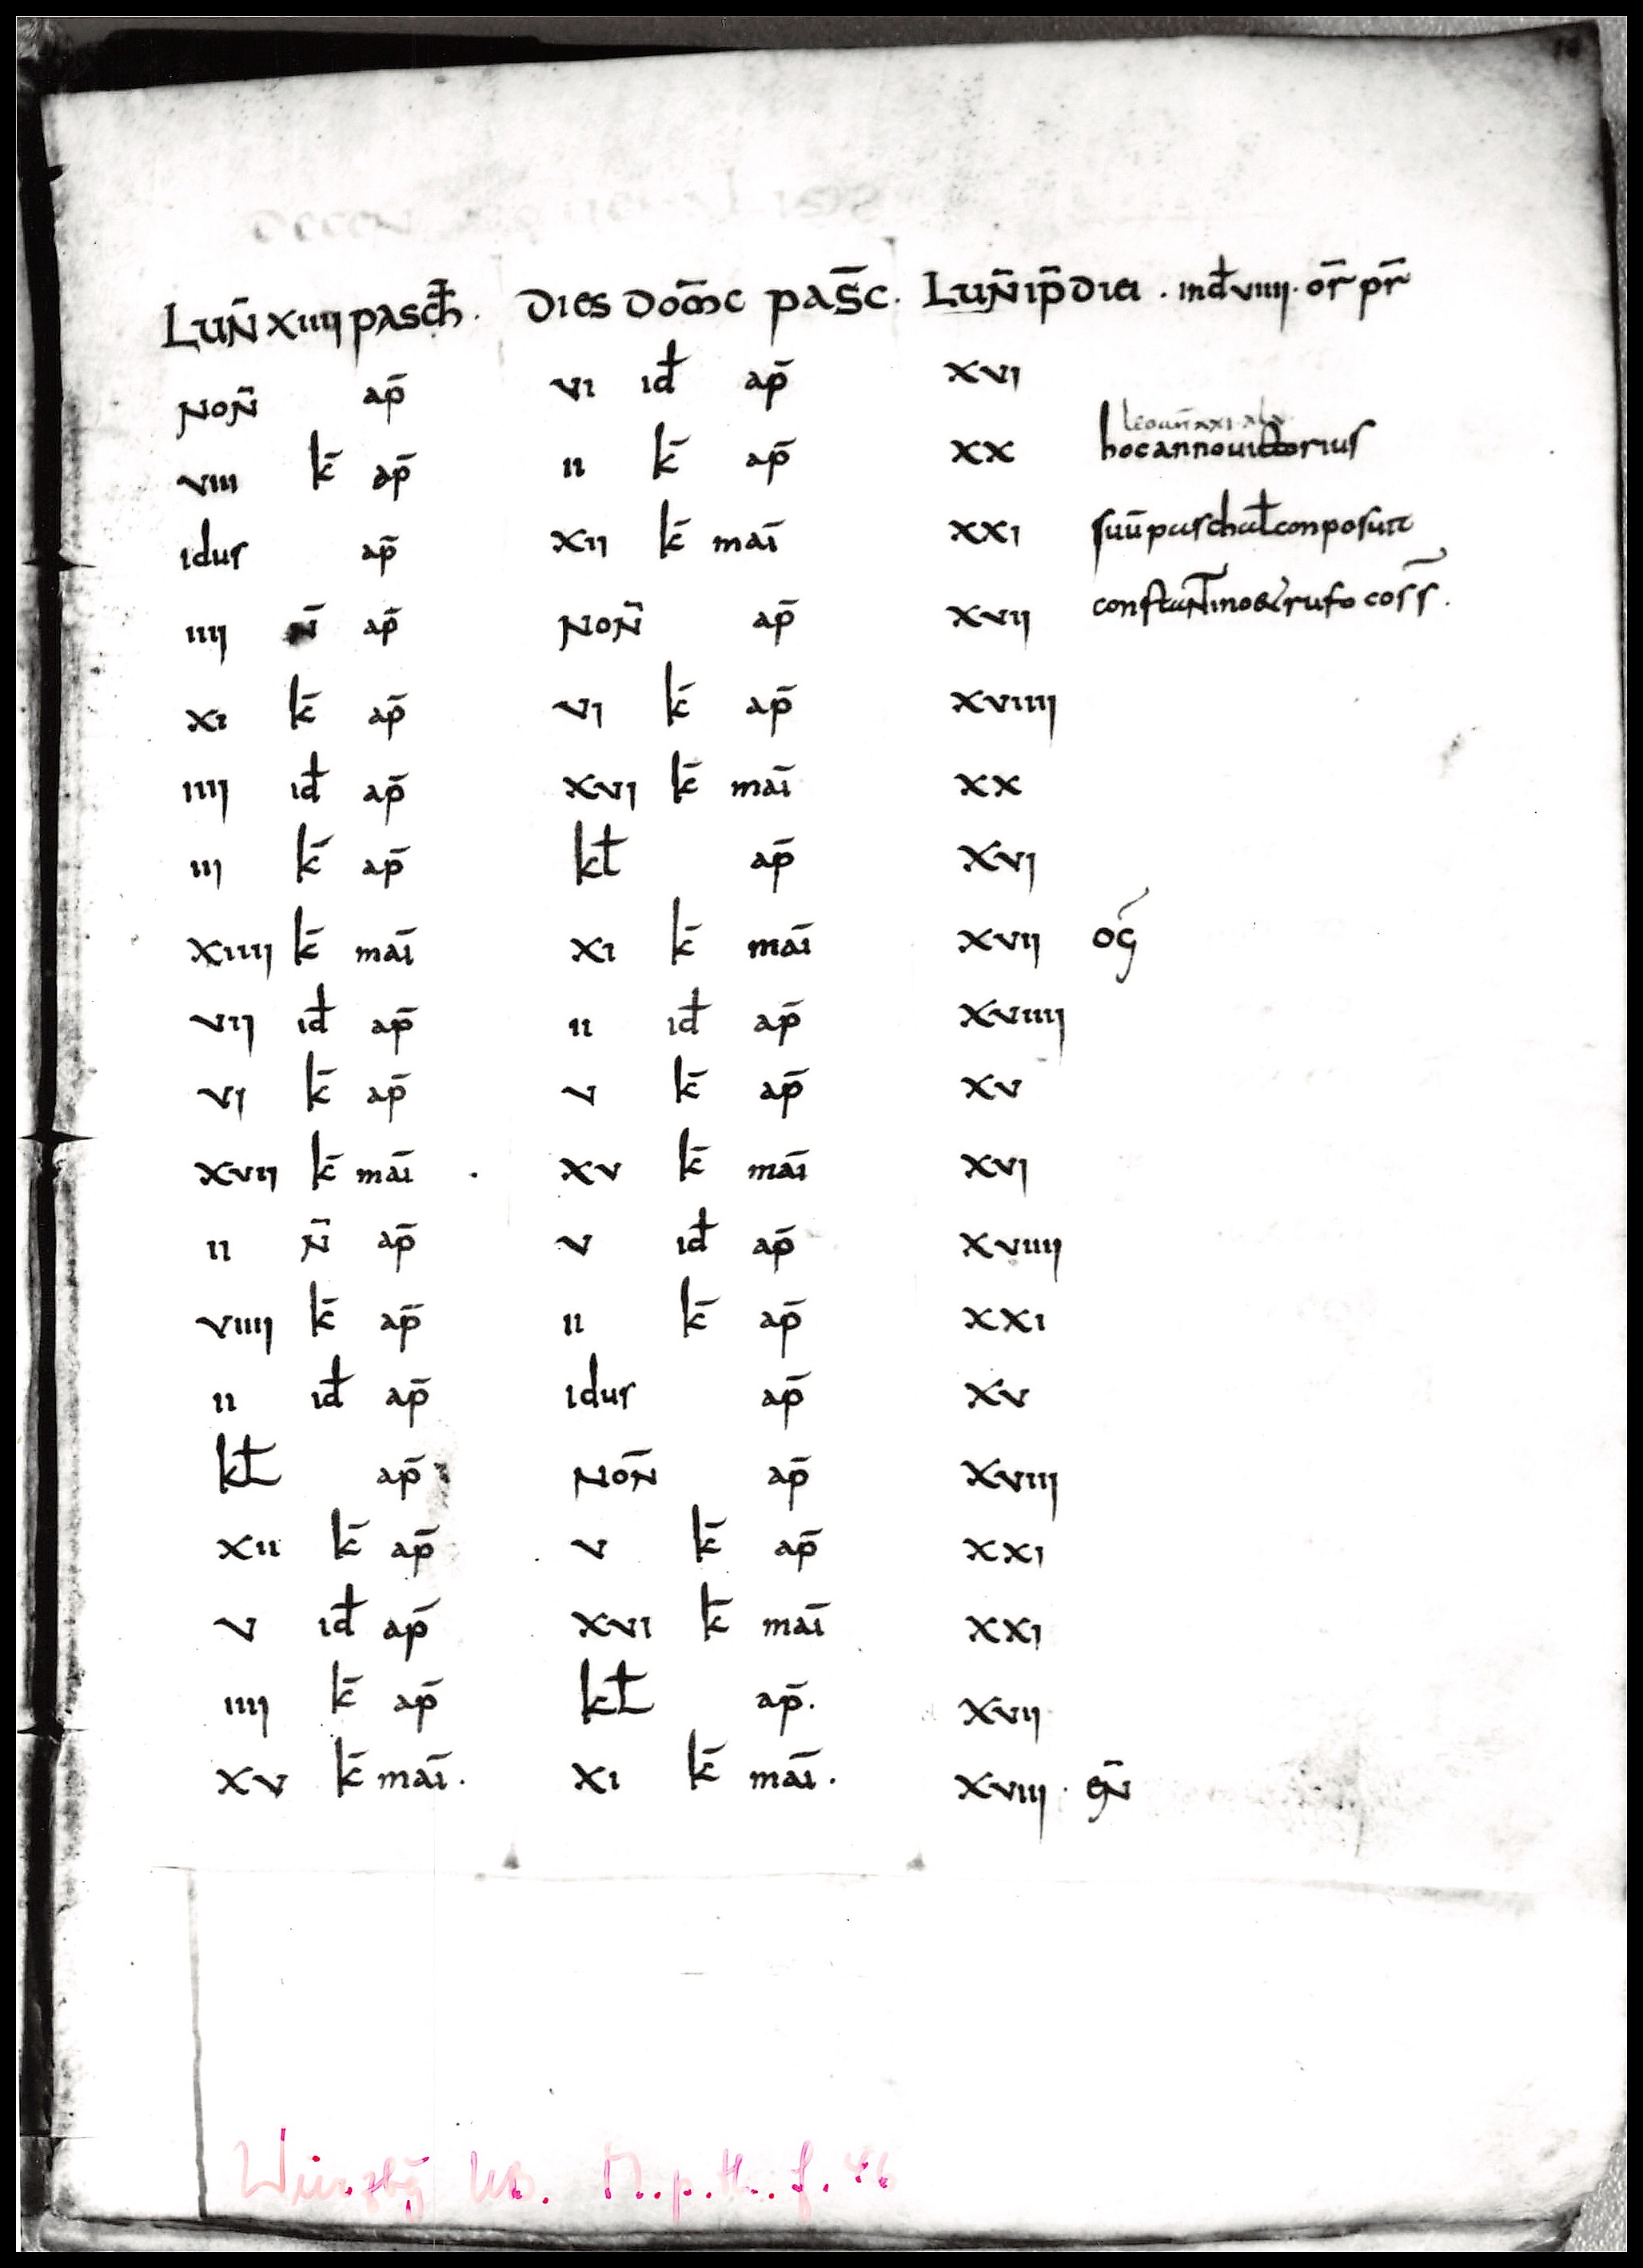 LUN̄ xiiii pasc̄h. Dies Dom̄c pas̄c. LUN̄ ip̄ Diei . ind̄ viiii . or̄ pr̄
NON̄ ap̄ vi id̄ ap̄ xvi
viii k̄ ap̄ ii k̄ ap̄ xx hoc anno uictorius
idus ap̄ xii k̄ mai̅ xxi suū paschal̄ conposuit
iiii N̄ ap̄ NON̄ ap̄ xvii constan̄tino & rufo cos̄s.
xi k̄ ap̄ vi k̄ ap̄ xviiii
iiii id̄ ap̄ xvi k̄ mai̅ xx
iii k̄ ap̄ kl̄ ap̄ xvi
xiiii k̄ mai̅ xi k̄ mai̅ xvii oḡ
vii id̄ ap̄ ii id̄ ap̄ xviiii
vi k̄ ap̄ v k̄ ap̄ xv
xvii k̄ mai̅ . xv k̄ mai̅ xvi
ii N̄ ap̄ v id̄ ap̄ xviiii
viiii k̄ ap̄ ii k̄ ap̄ xxi
ii id̄ ap̄ idus ap̄ xv
kl̄ ap̄ NON̄ ap̄ xviii
xii k̄ ap̄ v k̄ ap̄ xxi
v id̄ ap̄ xvi k̄ mai̅ xxi
iiii k̄ ap̄ kl̄ ap̄. xvii
xv k̄ mai̅. xi k̄ mai̅. xviii . eN̄
Würzbg UB. M.p.th.f. 46